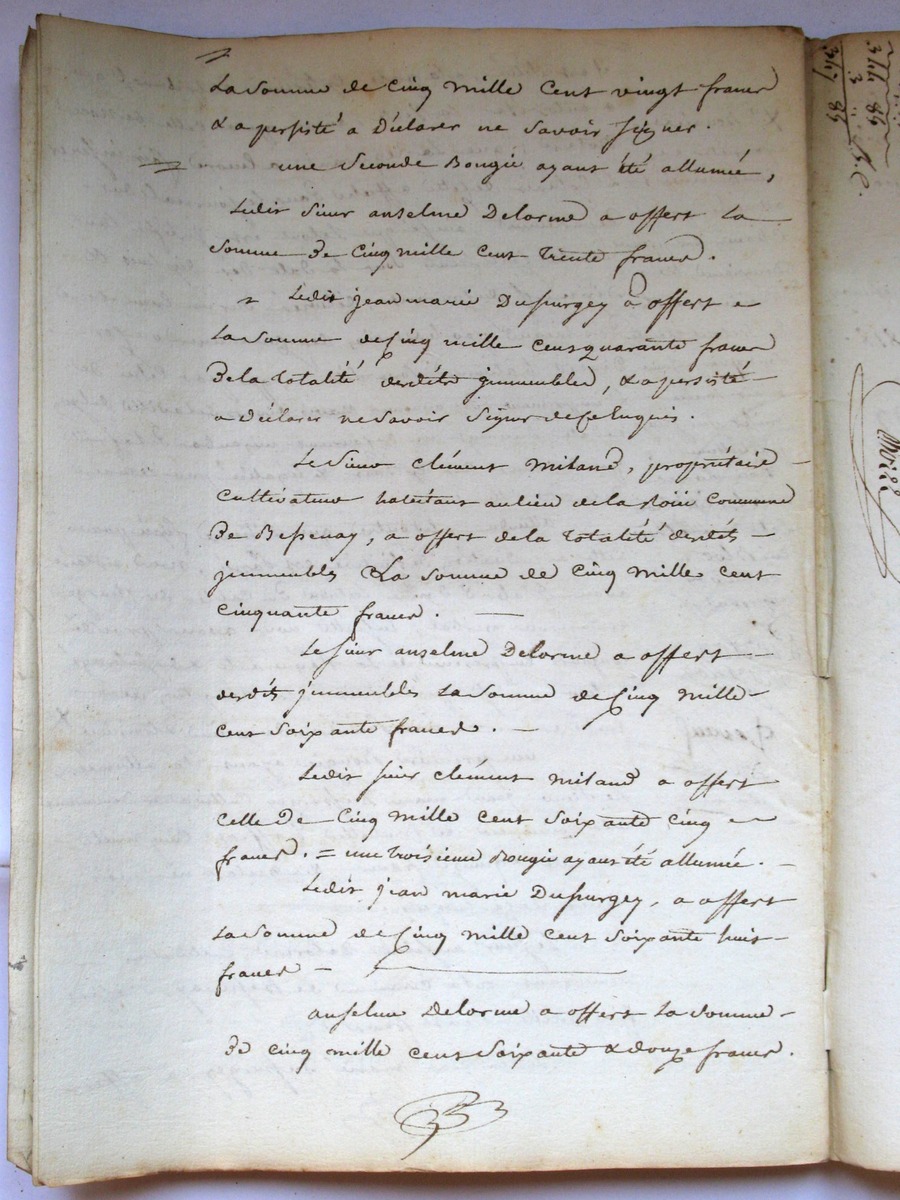 La somme de cinq mille cent vingt francs
& a persisté a Déclarer ne savoir signer.
= une seconde Bougie ayant été allumée,
Ledit sieur anselme Delorme a offert La
somme De cinq mille cent trente francs.
Ledit jean marie Dupurgey a offert
La somme de cinq mille cent quarante francs
De la totalité desdits jmmeubles, & a persisté
a Déclarer ne savoir signer de ce enquis.
Le sieur clément miland, propriétaire
cultivateur habitant au lieu de la Roüe Commune
De Bessenay, a offert de la totalité desdits
jmmeubles La somme de cinq mille cent
cinquante francs.
Le sieur anselme Delorme a offert
desdits jmmeubles La somme de cinq mille
cent soixante francs.
Ledit sieur clément miland a offert
celle De cinq mille cent soixante cinq
francs. = une troisieme Bougie ayant été allumée.
Ledit jean marie Dupurgey, a offert
La somme de cinq mille cent soixante huit
francs
anselme Delorme a offert La somme
De cinq mille cent soixante & douze francs.